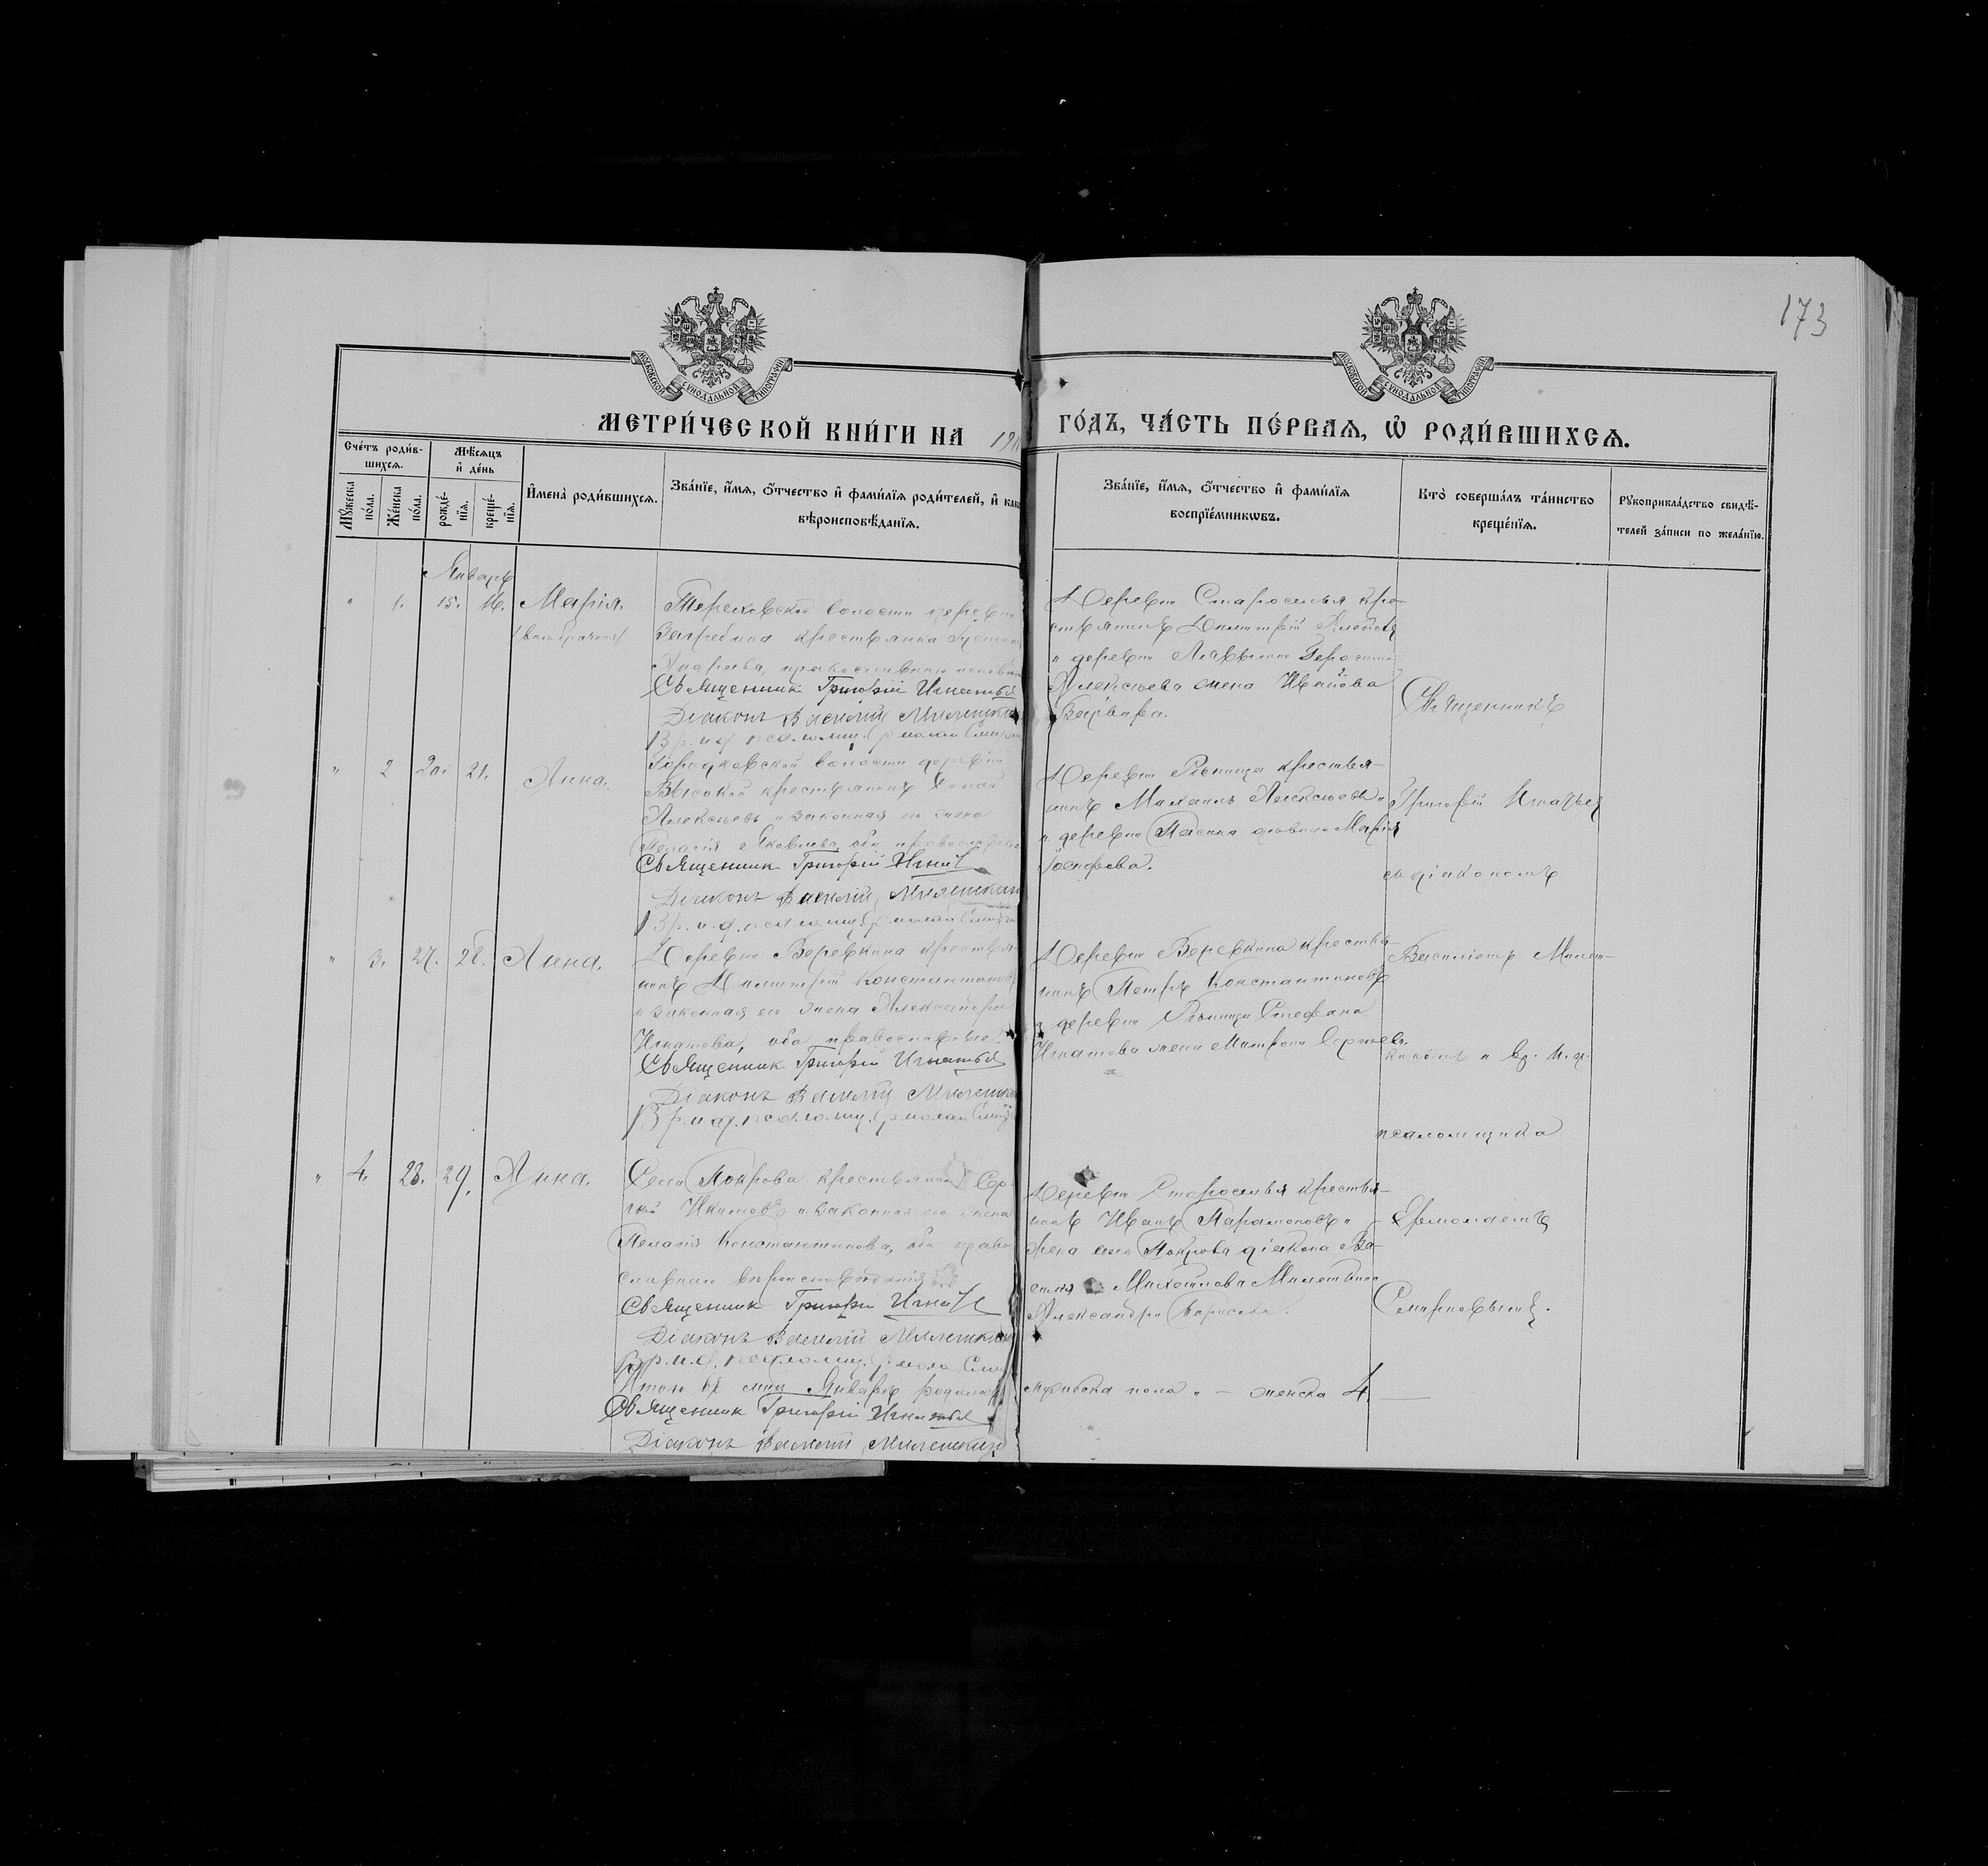 173
МОСКОВСКОЙ СѴНОДАЛЬНОЙ ТИПОГРАФІИ
МОСКОВСКОЙ СѴНОДАЛЬНОЙ ТИПОГРАФІИ
МЕТРИ́ЧЕСКОЙ КНИ́ГИ НА 191
ГО́ДЪ, ЧА́СТЬ ПЕ́РВАѦ, Ѽ РОДИ́ВШИХСѦ.
Сче́тъ роди́в-
шихсѧ.
Мꙋ́жеска по́ла.
Же́нска по́ла.
Мѣ́сѧцъ
и҆ де́нь
рожде́-
нїѧ.
креще́-
нїѧ.
И҆мена̀ роди́вшихсѧ.
Зва́нїе, и҆́мѧ, ѻ҆́тчество и҆ фами́лїѧ роди́телей, и҆ как
вѣроисповѣ́данїѧ.
Зва́нїе, и҆́мѧ, ѻ҆́тчество и҆ фами́лїѧ
воспрїе́мникѡвъ.
Кто̀ соверша́лъ та́инство
креще́нїѧ.
Рꙋкоприкла́дство свидѣ́-
телей за́писи по жела́нїю.
Январь
" 1. 15. 16. Марія.
(внебрачная)
волости деревни
крестьянка
Андреева, православнаго
Священник Григорій Игнатьев
Діаконъ Василій Милешкин
Вр. и. д. псаломщ. Ермолай Смирнов
Деревни Староселья кре-
стьянинъ Димитрій
и деревни
Алексѣева жена Иванова
Варвара.
Священникъ
" 2 20. 21. Анна.
волости деревни
Высокой крестьянинъ
Алексѣевъ и законная его жена
Пелагія Яковлева, оба православные
Священник Григорій Игнатьев
Діаконъ Василій Милешкин
Вр. и. д. псаломщ. Ермолай Смирнов
Деревни крестья-
нинъ Михаилъ Алексѣевъ и
деревни дѣвица Марія
Іосифова.
Григорій Игнатьев
съ діакономъ
" 3. 27. 28. Анна.
Деревни Веревкина крестья-
нинъ Димитрій Константиновъ
и законная его жена Александра
Игнатова, оба православные.
Священник Григорій Игнатьев
Діаконъ Василій Милешкин
Вр. и. д. псаломщ. Ермолай Смирнов
Деревни Веревкина крестья-
нинъ Петръ Константиновъ
и деревни Стефана
Игнатова жена Матрона Сергѣева.
Василіемъ Милеш-
кинымъ и вр. и. д.
псаломщика
" 4. 28. 29. Анна.
Села Покрова крестьянинъ Сер-
гій и законная его жена
Пелагія Константинова, оба право-
славнаго вѣроисповѣданія
Священник Григорій Игнатьев
Діаконъ Василій Милешкин
Вр. и. д. псаломщ. Ермолай Смирнов
Деревни Староселья крестья-
нинъ Иванъ Парамоновъ и
жена села Покрова діакона Ва-
силія Михайлова Милешкина
Александра Борисова.
Ермолаемъ
Смирновымъ.
Итого въ мцѣ Январѣ родилось
мужеска пола " — женска 4. —
Священник Григорій Игнатьев
Діаконъ Василій Милешкин